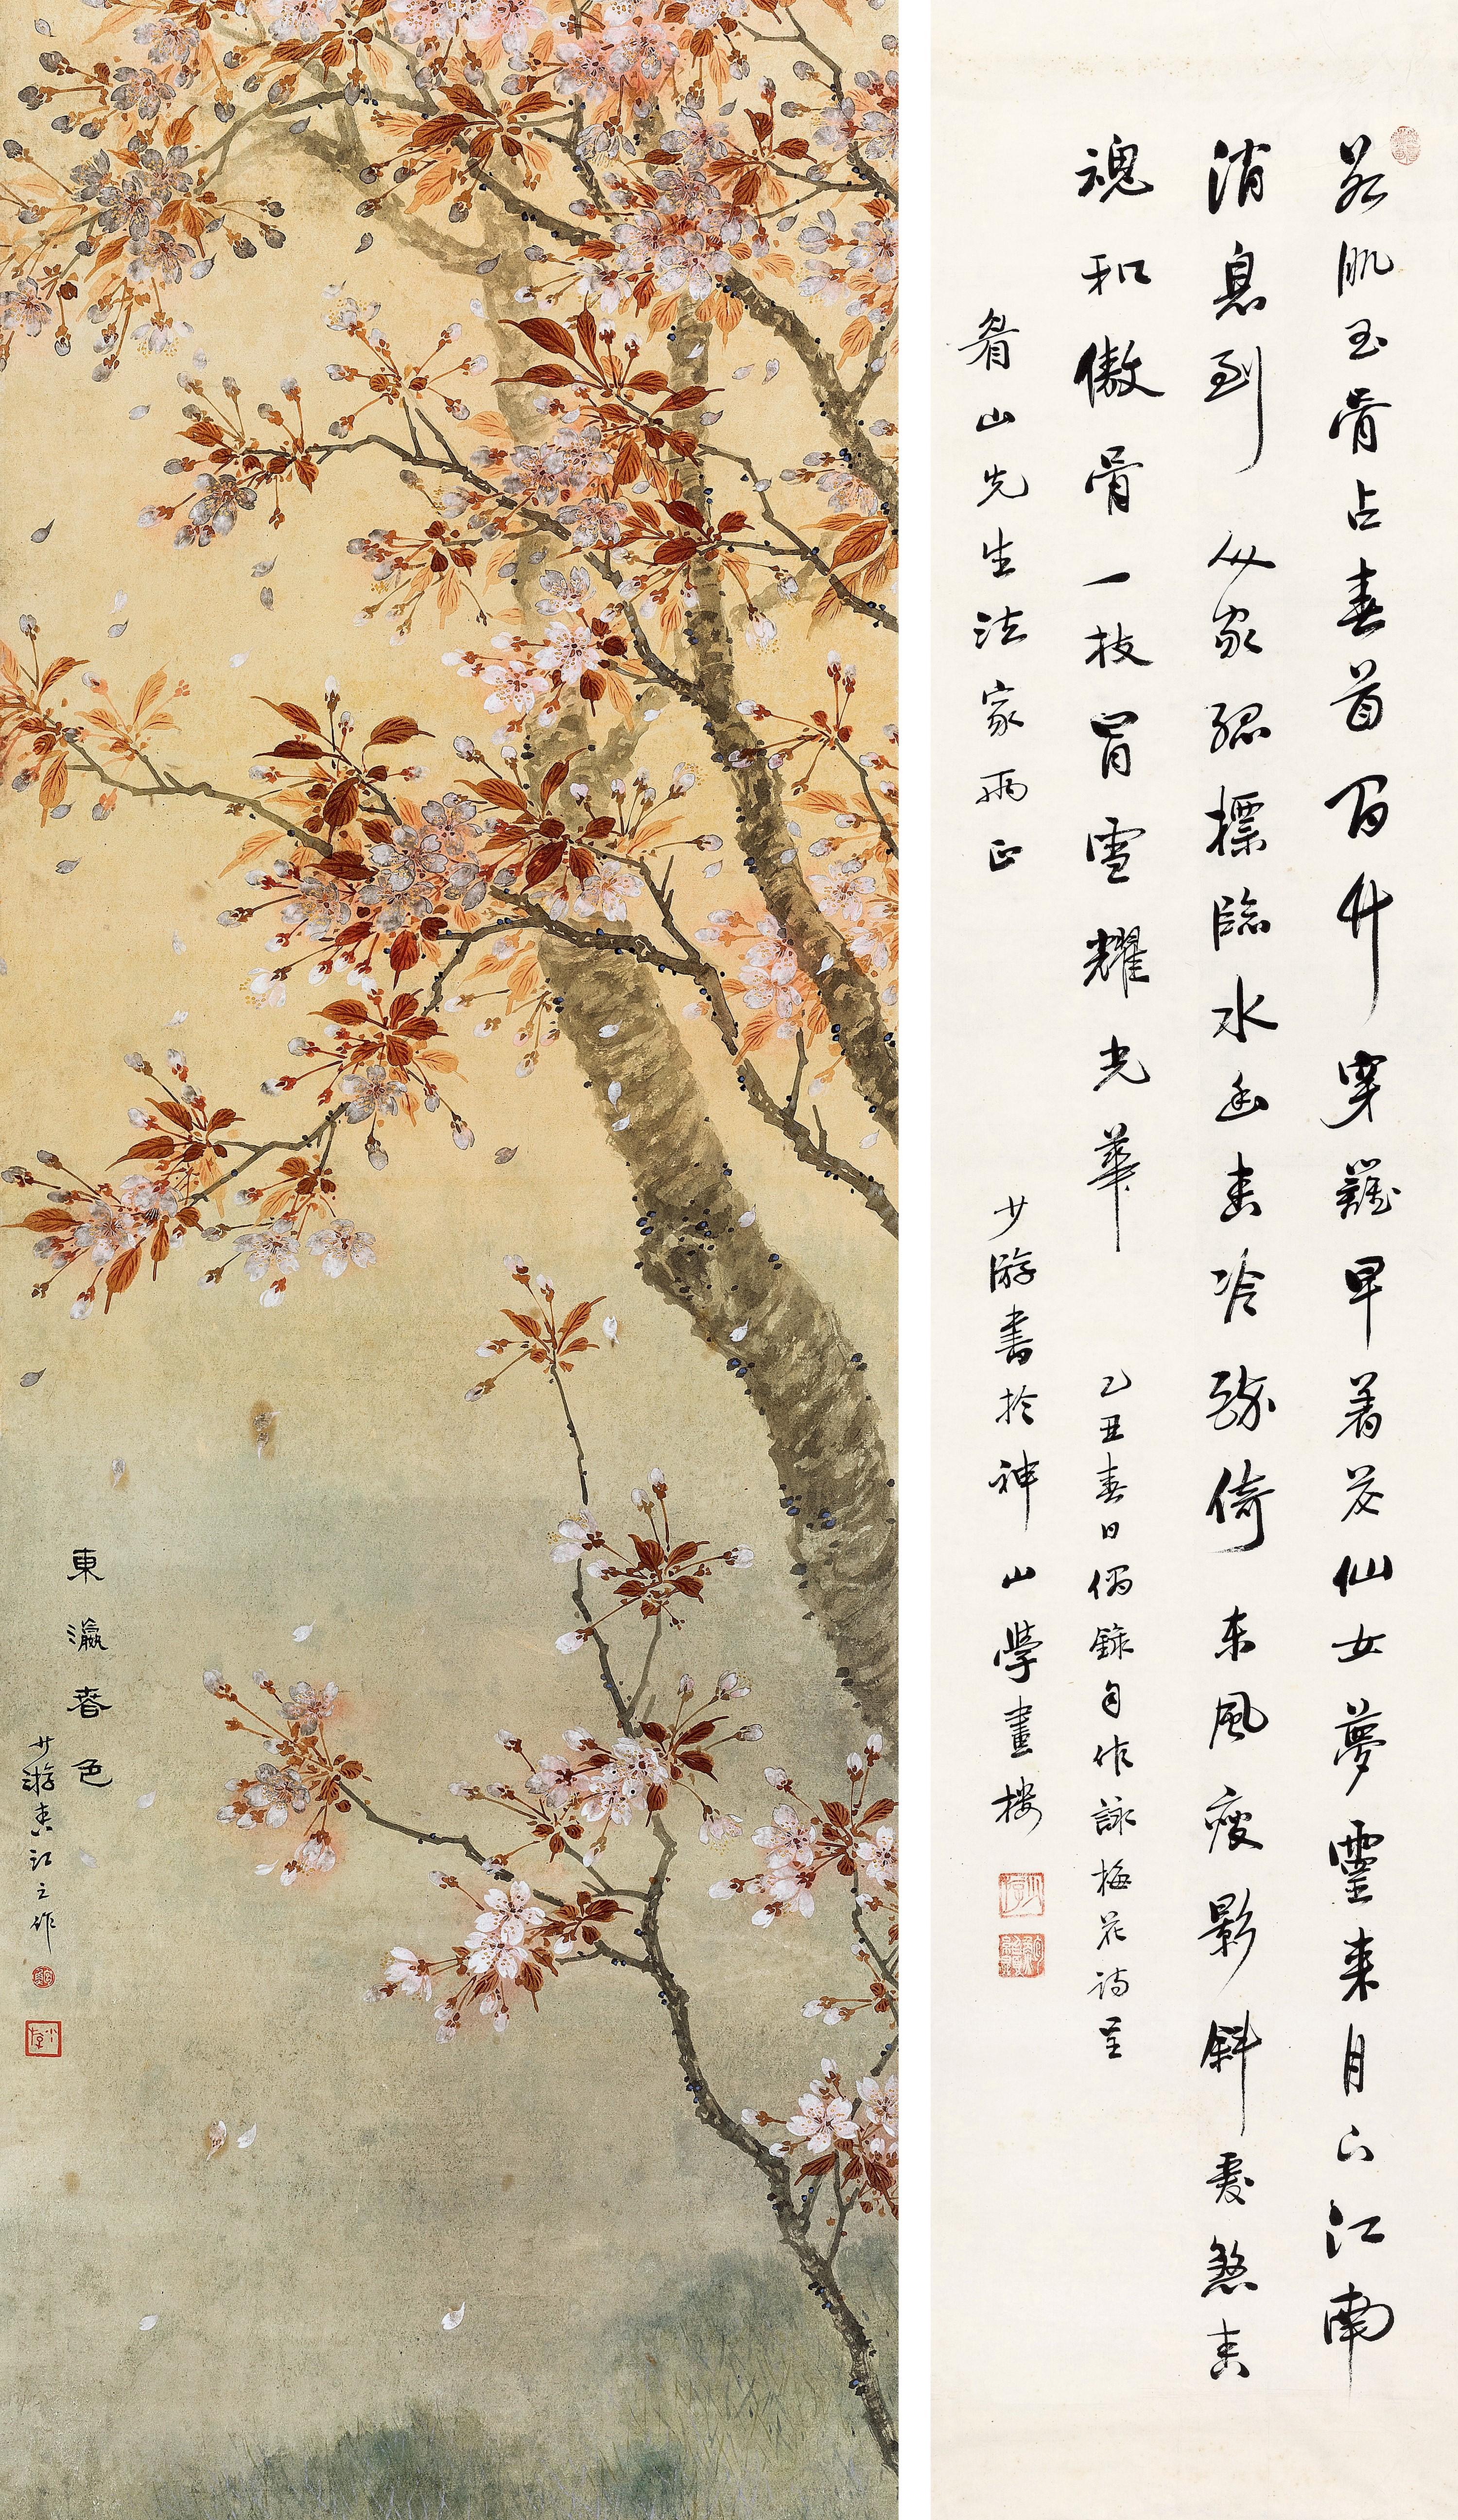 東瀛春色
少游香江之作
若肌玉骨占春首百卉穿難早著花仙女夢靈來月下江南
消息到人家孤標臨水幽香冷疏倚東風瘦影斜愛煞香
魂和傲骨一枝冒雪耀光華 乙丑春日偶錄自作詠梅花詩呈
眉山先生法家雨正 少游書於神山學畫樓